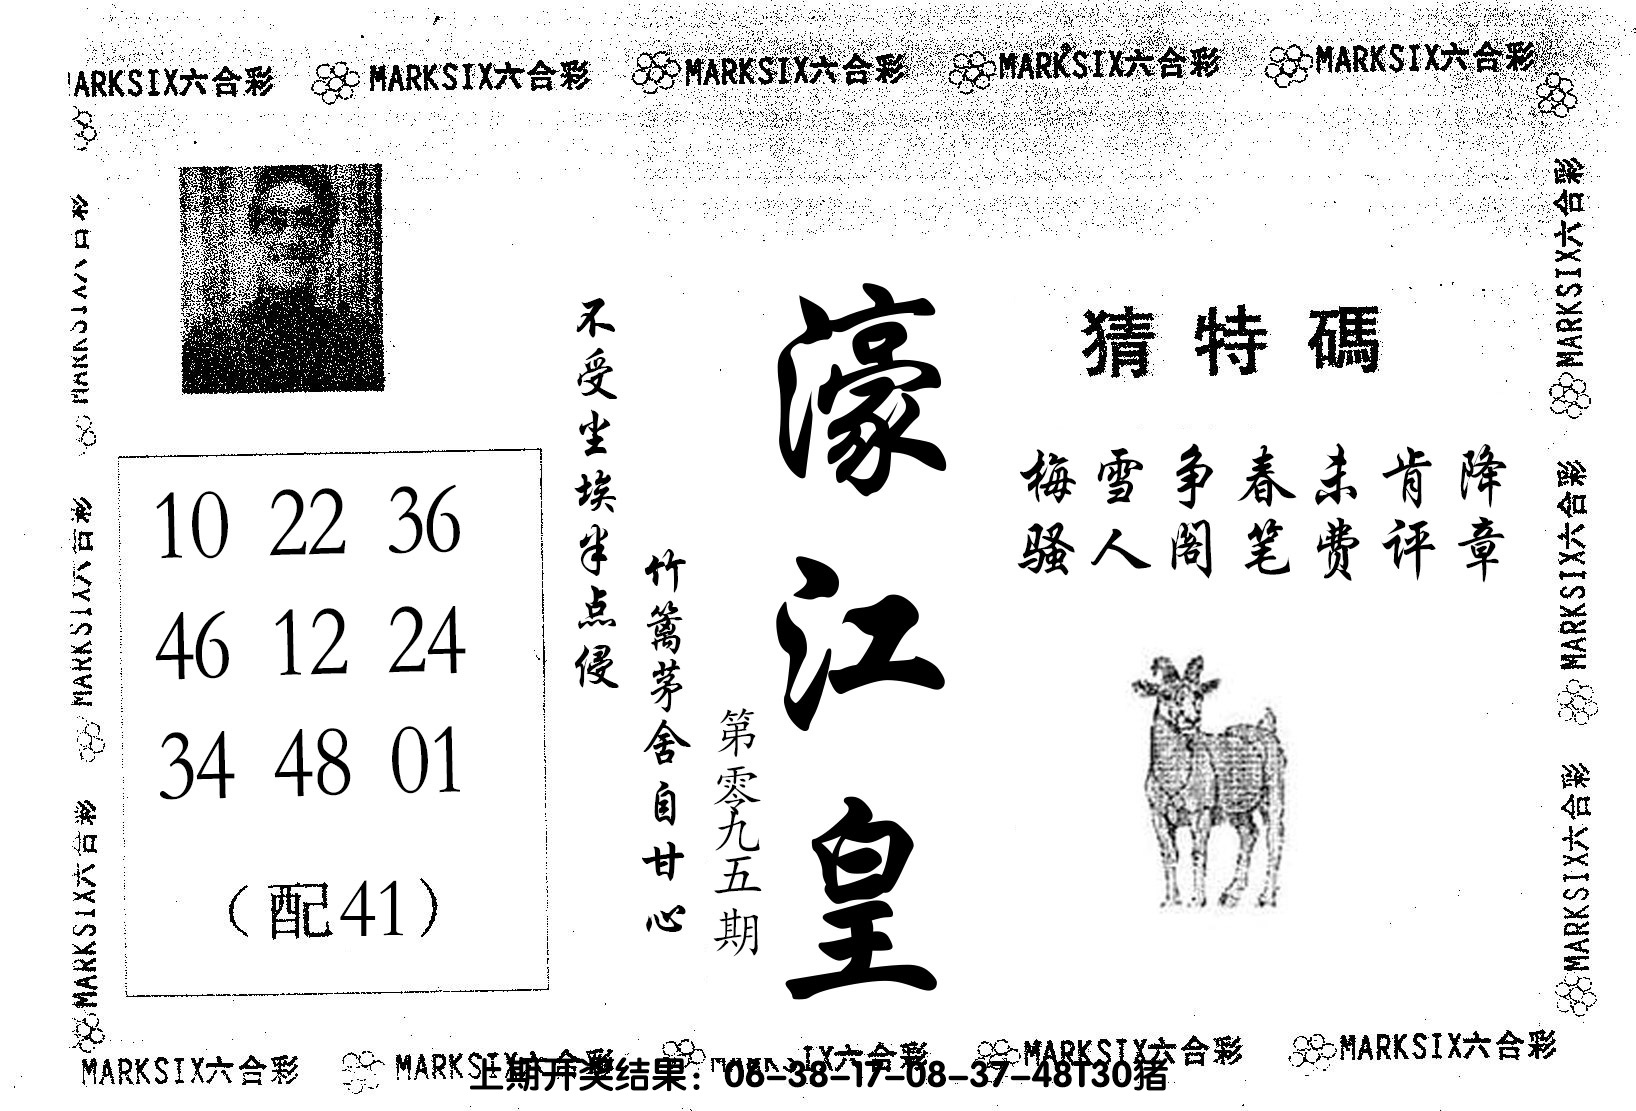 MARKSIX六合彩 MARKSIX六合彩 MARKSIX六合彩 MARKSIX六合彩 MARKSIX六合彩
猜特碼
梅雪争春未肯降
骚人阁笔费评章
濠江皇
第零九五期
不受尘埃半点侵
竹篱茅舍自甘心
10 22 36
46 12 24
34 48 01
（配41）
MARKSIX六合彩
MARKSIX六合彩
MARKSIX六合彩
MARKSIX六合彩
MARKSIX六合彩
MARKSIX六合彩
MARKSIX六合彩 MARKSIX六合彩 MARKSIX六合彩 MARKSIX六合彩 MARKSIX六合彩
上期开奖结果：06-38-17-08-37-48T30猪